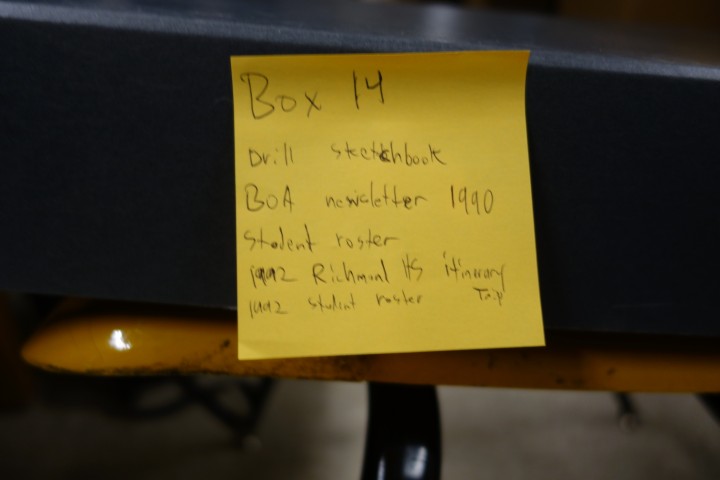 Box 14
Drill sketchbook
BOA newsletter 1990
Student roster
1992 Richmond HS itinerary
Trip
1992 student roster